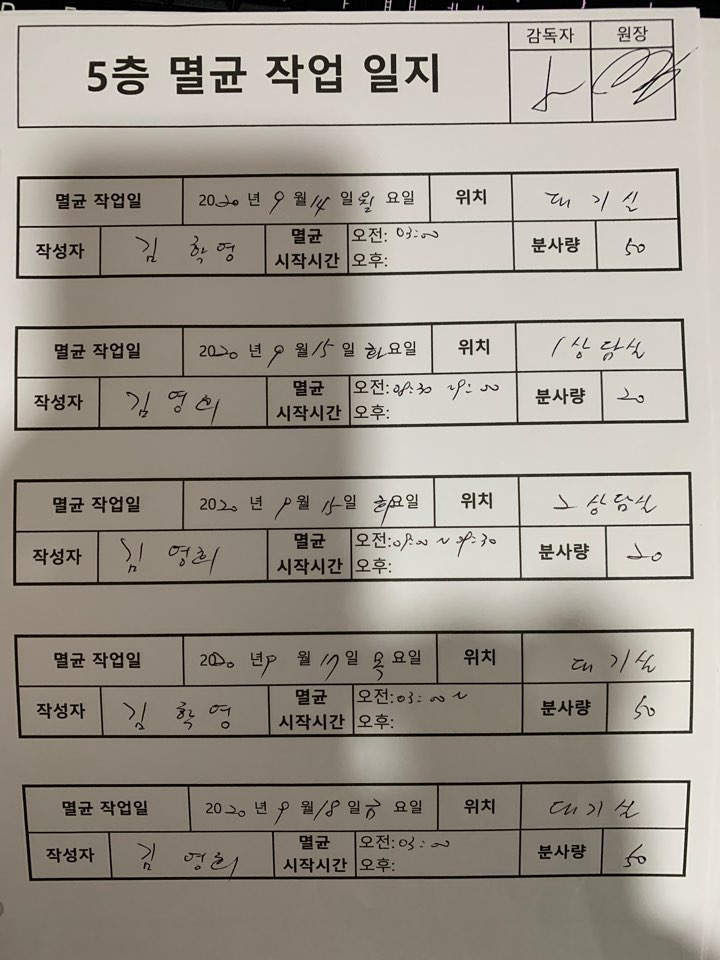 감독자 원장
5층 멸균 작업 일지
멸균 작업일 2020 년 9 월 14 일 월 요일 위치 대기실
작성자 김 학영 멸균 시작시간 오전: 03:00 오후: 분사량 50
멸균 작업일 2020 년 9 월 15 일 화요일 위치 1상담실
작성자 김영희 멸균 시작시간 오전: 08:30 ~ 9:00 오후: 분사량 20
멸균 작업일 2020 년 9월 15일 화요일 위치 2상담실
작성자 김 영희 멸균 시작시간 오전: 09:00 ~ 09:30 오후: 분사량 20
멸균 작업일 2020 년 9 월 17 일 목 요일 위치 대기실
작성자 김 학영 멸균 시작시간 오전: 03:00 ~ 오후: 분사량 50
멸균 작업일 2020 년 9 월 18 일 금 요일 위치 대기실
작성자 김 영희 멸균 시작시간 오전: 03:00 오후: 분사량 50